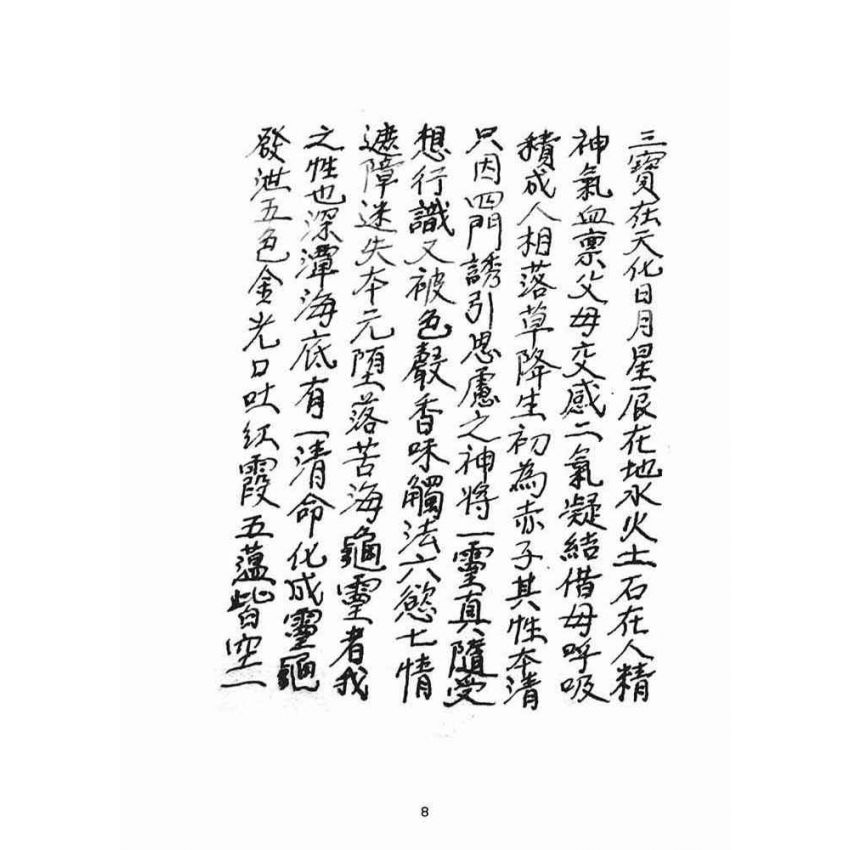 三寶在天化日月星辰在地水火土石在人精
神氣血禀父母交感二氣凝結借母呼吸
積成人相落草降生初為赤子其性本清
只因四門誘引思慮之神將一霊真隨受
想行識又被色聲香味觸法六慾七情
遮障迷失本元堕落苦海龜靈者我
之性也深潭海底有一清命化成靈龜
發泄五色金光口吐紅霞五蘊皆空一
8